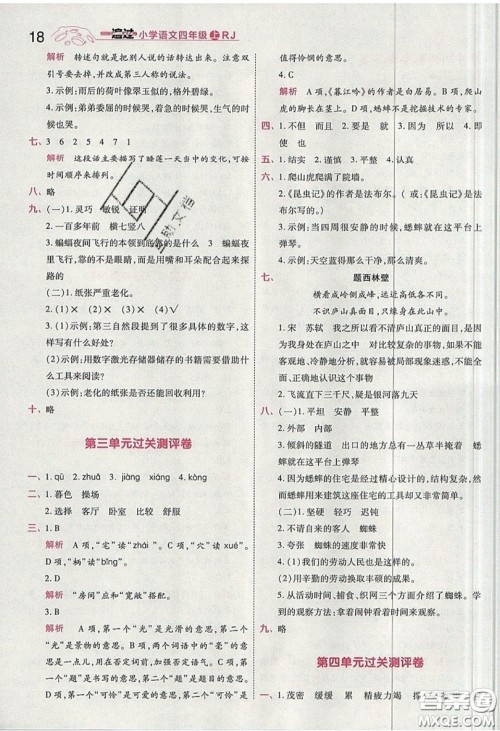 18 一遍过 小学语文四年级 上 RJ
解析 转述句就是把别人说的话转达出去。注意双
引号要去掉,并改成间接叙述的方式。
3. 示例:雨后的荷叶像翠玉似的,碧绿碧绿。
4. 示例:弟弟委屈的时候哭,着急的时候哭,生气的时
候也哭。
七、3 6 2 5 4 7 1
解析 这段话主要描写了睡莲一天当中的变化,可按
时间顺序来排列。
八、略
九、(一)1. 灵巧 敏锐 证明
2. 一百多年前 横七竖八
3. 蝙蝠夜间飞行的本领到底哪的是什么 3 蝙蝠夜
里飞行,靠的不是眼睛,而是用嘴和耳朵配合起来
探路的
(二)1. 纸张严重老化。
2. (1)× (2)× (3)√ (4)×
3. (1)示例:这些自然段提到了很多具体的数据,这
样写有什么好处?
(2)示例:用数字激光存储器储存的书籍需要借助什
么工具来阅读?
(3)示例:老化的纸张是否还能回收利用呢?
十、略
第三单元过关测评卷
一、1. qū 2. zhuā 3. jiàng 4. kòng
二、1. 暮色 操场
2. 选择 客厅 卧室 比较 舒服
三、1. B
解析 A项,“宅”读“zhái”。C项,“穴”读 xué”。
D项,“柄”读“bǐng”。
2. D
解析 “房间”应和“宽敞”搭配。
3. B
解析 A项,第一个“光”是光滑的意思,第二个
“光”是景物的意思。B项,两个词语中的“毫”都
是一点儿的意思。C项,第一个“题”是写上的意
思,第二个“题”是题目的意思。D项,第一个“得”
是得到的意思,第二个“得”是适合的意思。
4. C
解析 A项,《暮江吟》的作者是白居易。B项,爬山
虎的脚有吸附性。D项,蟋蟀不是挖掘技术的专家。
四、1. 不但 而且 2. 如果 就 3. 因为 所以 4. 即
使 也
五、1. 结实 2. 谨慎 3. 平整
六、1. 爬山虎爬满了院墙。
2. 《昆虫记》的作者是法布尔。(《昆虫记》是法布
尔写的。)
3. 示例:当四周很安静的时候,蟋蟀就在这平台上
弹琴。
4. 示例:天空蓝得那么清澈,那么干净。
七、 题西林壁
横看成岭侧成峰,远近高低各不同。
不识庐山真面目,只缘身在此山中。
1. 宋 苏轼 我之所以看不清庐山真正的面目,是
因为我身处在庐山之中 对于比较复杂的事物,如
果不能客观冷静地分析,就容易被局部现象迷惑,不能
全面、正确地认识这个事物
2. 飞流直下三千尺,疑是银河落九天
八、(一)1. 平坦 安静 平整
2. 外部 内部
3. 倾斜的 弯弯曲曲的 隧道 自由自在的 弹琴
的 蟋蟀
4. 因为蟋蟀的住宅是经过精心设计的,结构复杂,
而且完全是由柔弱的蟋蟀挖掘出来的
(二)1. 坚硬 轻巧 迟钝
2. 不劳动者不得食 蜘蛛
3. 夸张 蜘蛛网 蜘蛛
4. (1)勤劳的劳动人民也是这样的。
(2)用辛勤的劳动换来丰硕的成果。
5. 从活动时间、捕食、织网三个方面介绍了蜘蛛。
示例:我是一个细心观察的孩子,会坚持长时间地
来观察。
九、略
第四单元过关测评卷
一、1. 茂密 缓缓 累 精疲力竭
答案圈
MXQE.COM